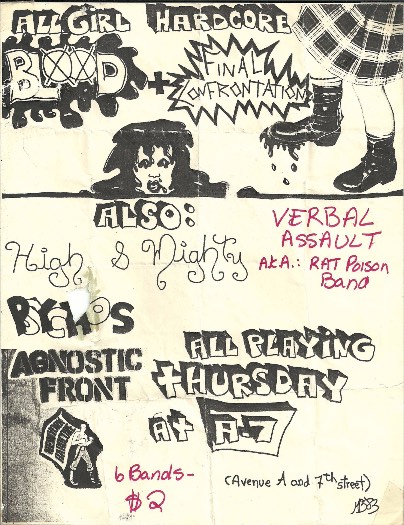 ALL GIRL HARDCORE
BLOOD + FINAL
CONFRONTATION
ALSO:
High & Mighty
VERBAL
ASSAULT
A.K.A.: RAT POISON
Band
PSYCHOS
AGNOSTIC
FRONT
ALL PLAYING
THURSDAY
AT A-7
6 Bands-
$2
(Avenue A and 7th street)